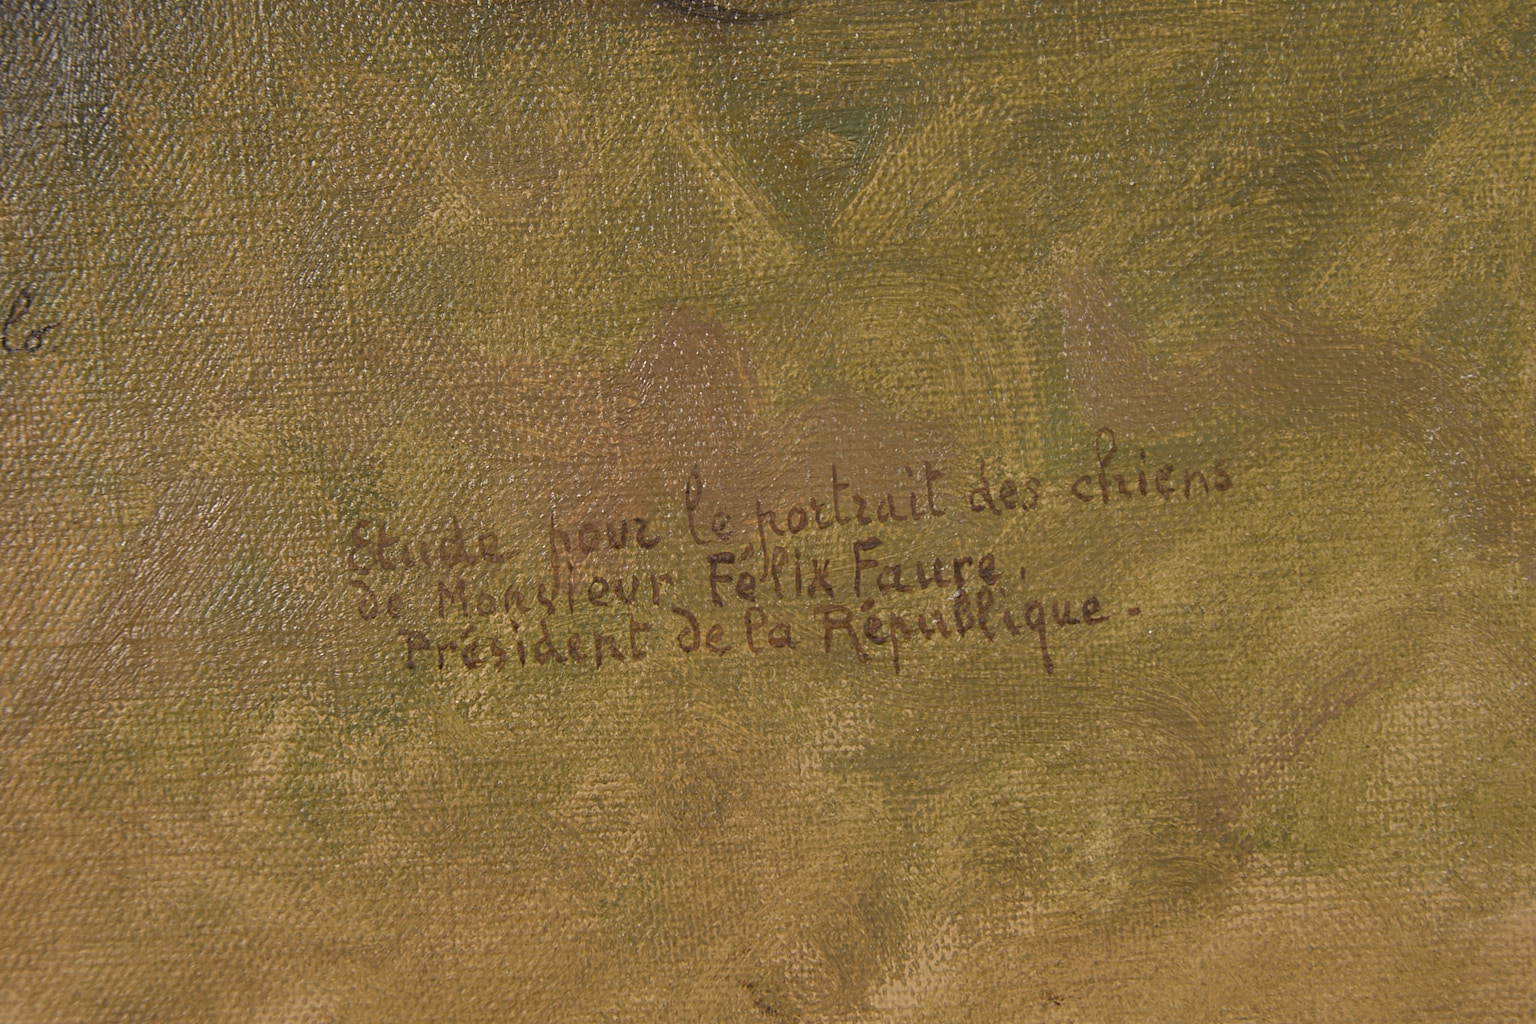 lo
Etude pour le portrait des chiens
de Monsieur Félix Faure,
Président de la République.-